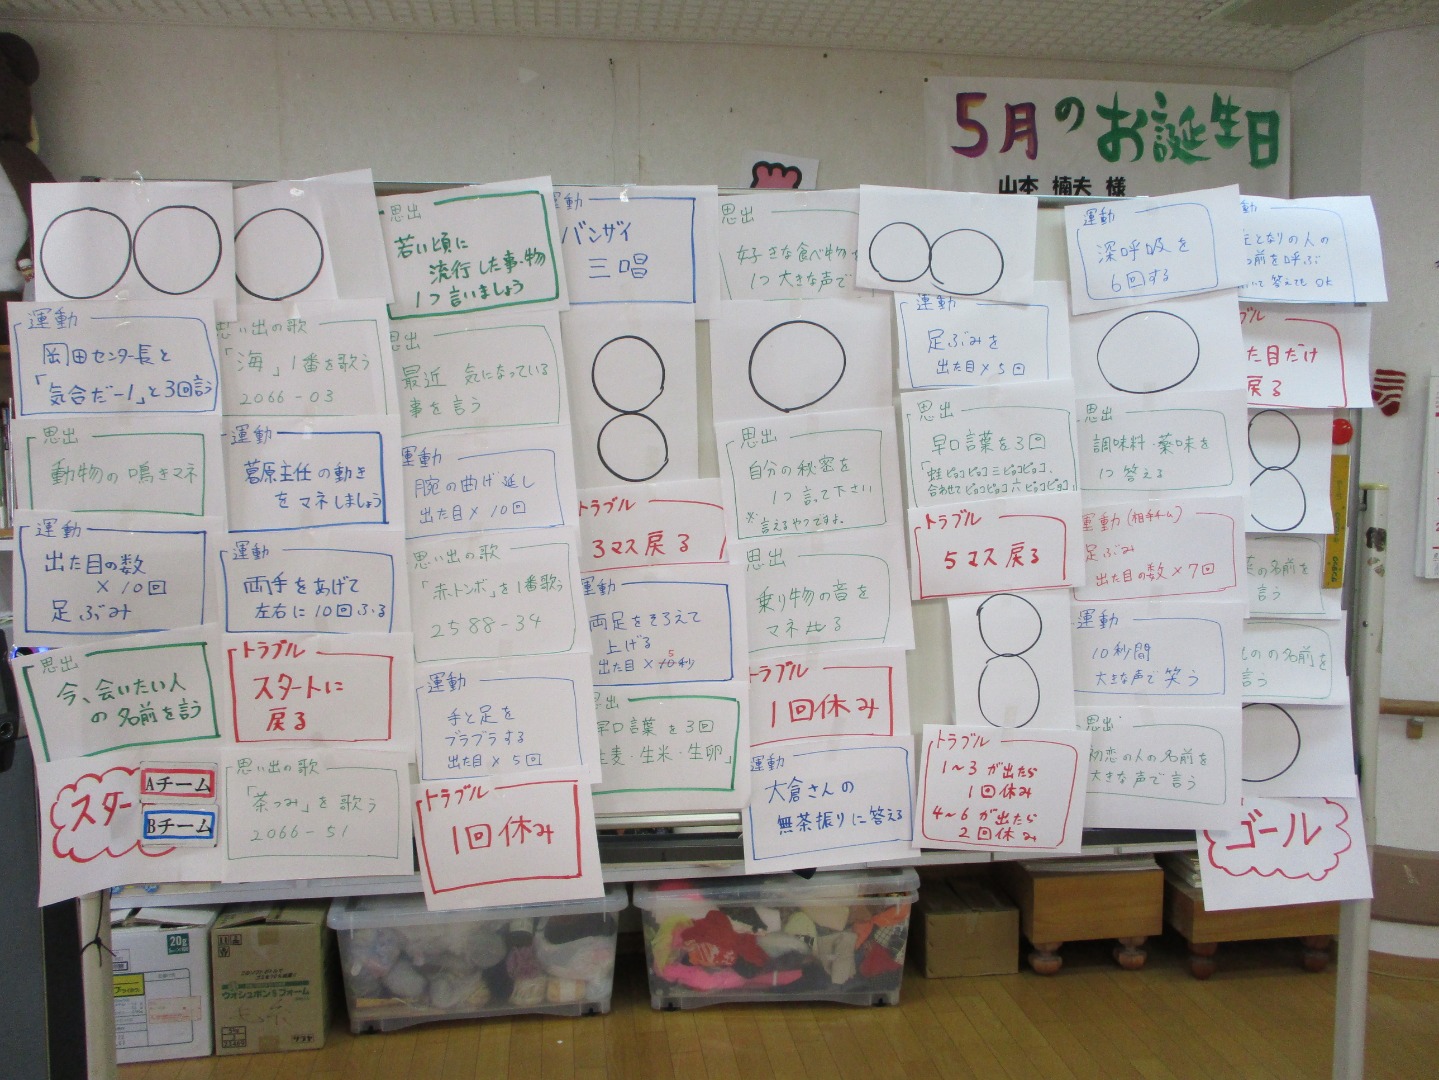 5月のお誕生日
山本 楠夫 様
思出
若い頃に
流行した事・物
1つ言いましょう
運動
バンザイ
三唱
思出
好きな食べ物
1つ大きな声で
運動
深呼吸を
6回する
となりの人の
前を呼ぶ
答えても OK
運動
岡田センター長と
「気合だー!」と3回言う
思い出の歌
「海」1番を歌う
2066-03
思出
最近 気になっている
事を言う
運動
足ぶみを
出た目×5回
た目だけ
戻る
思出
動物の鳴きマネ
運動
葛原主任の動き
をマネしましょう
運動
腕の曲げ延し
出た目×10回
トラブル
3マス戻る
思出
自分の秘密を
1つ言って下さい
※言えるやつですよ。
思出
早口言葉を3回
「蛙ピョコピョコ三ピョコピョコ、
合わせてピョコピョコ六ピョコピョコ」
思出
調味料・薬味を
1つ答える
運動
出た目の数
×10回
足ぶみ
運動
両手をあげて
左右に10回ふる
思い出の歌
「赤トンボ」を1番歌う
2588-34
運動
両足をそろえて
上げる
出た目×5秒
思出
乗り物の音を
マネせる
トラブル
5マス戻る
運動(相手チーム)
足ぶみ
出た目の数×7回
の名前を
言う
思出
今、会いたい人
の名前を言う
トラブル
スタートに
戻る
運動
手と足を
ブラブラする
出た目×5回
思出
早口言葉を3回
麦・生米・生卵」
トラブル
1回休み
運動
10秒間
大きな声で笑う
のの名前を
言う
スター
Aチーム
Bチーム
思い出の歌
「茶つみ」を歌う
2066-51
トラブル
1回休み
運動
大倉さんの
無茶振りに答える
トラブル
1~3が出たら
1回休み
4~6が出たら
2回休み
思出
初恋の人の名前を
大きな声で言う
ゴール
20g
ウォシュボンSフォーム